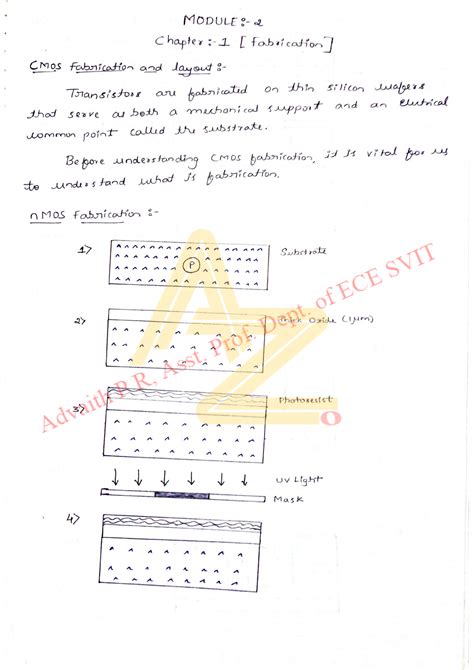 MODULE:- 2
Chapter:- 1 [Fabrication]
CMOS Fabrication and layout :-
Transistors are fabricated on thin silicon wafers
that serve as both a mechanical support and an electrical
common point called the substrate.
Before understanding CMOS fabrication, it is vital for us
to understand what is fabrication.
nMOS Fabrication :-
1)
P
Substrate
2)
Thick Oxide (1μm)
3)
Photoresist
UV Light
Mask
4)
Advaith P.R. Asst. Prof. Dept. of ECE SVIT